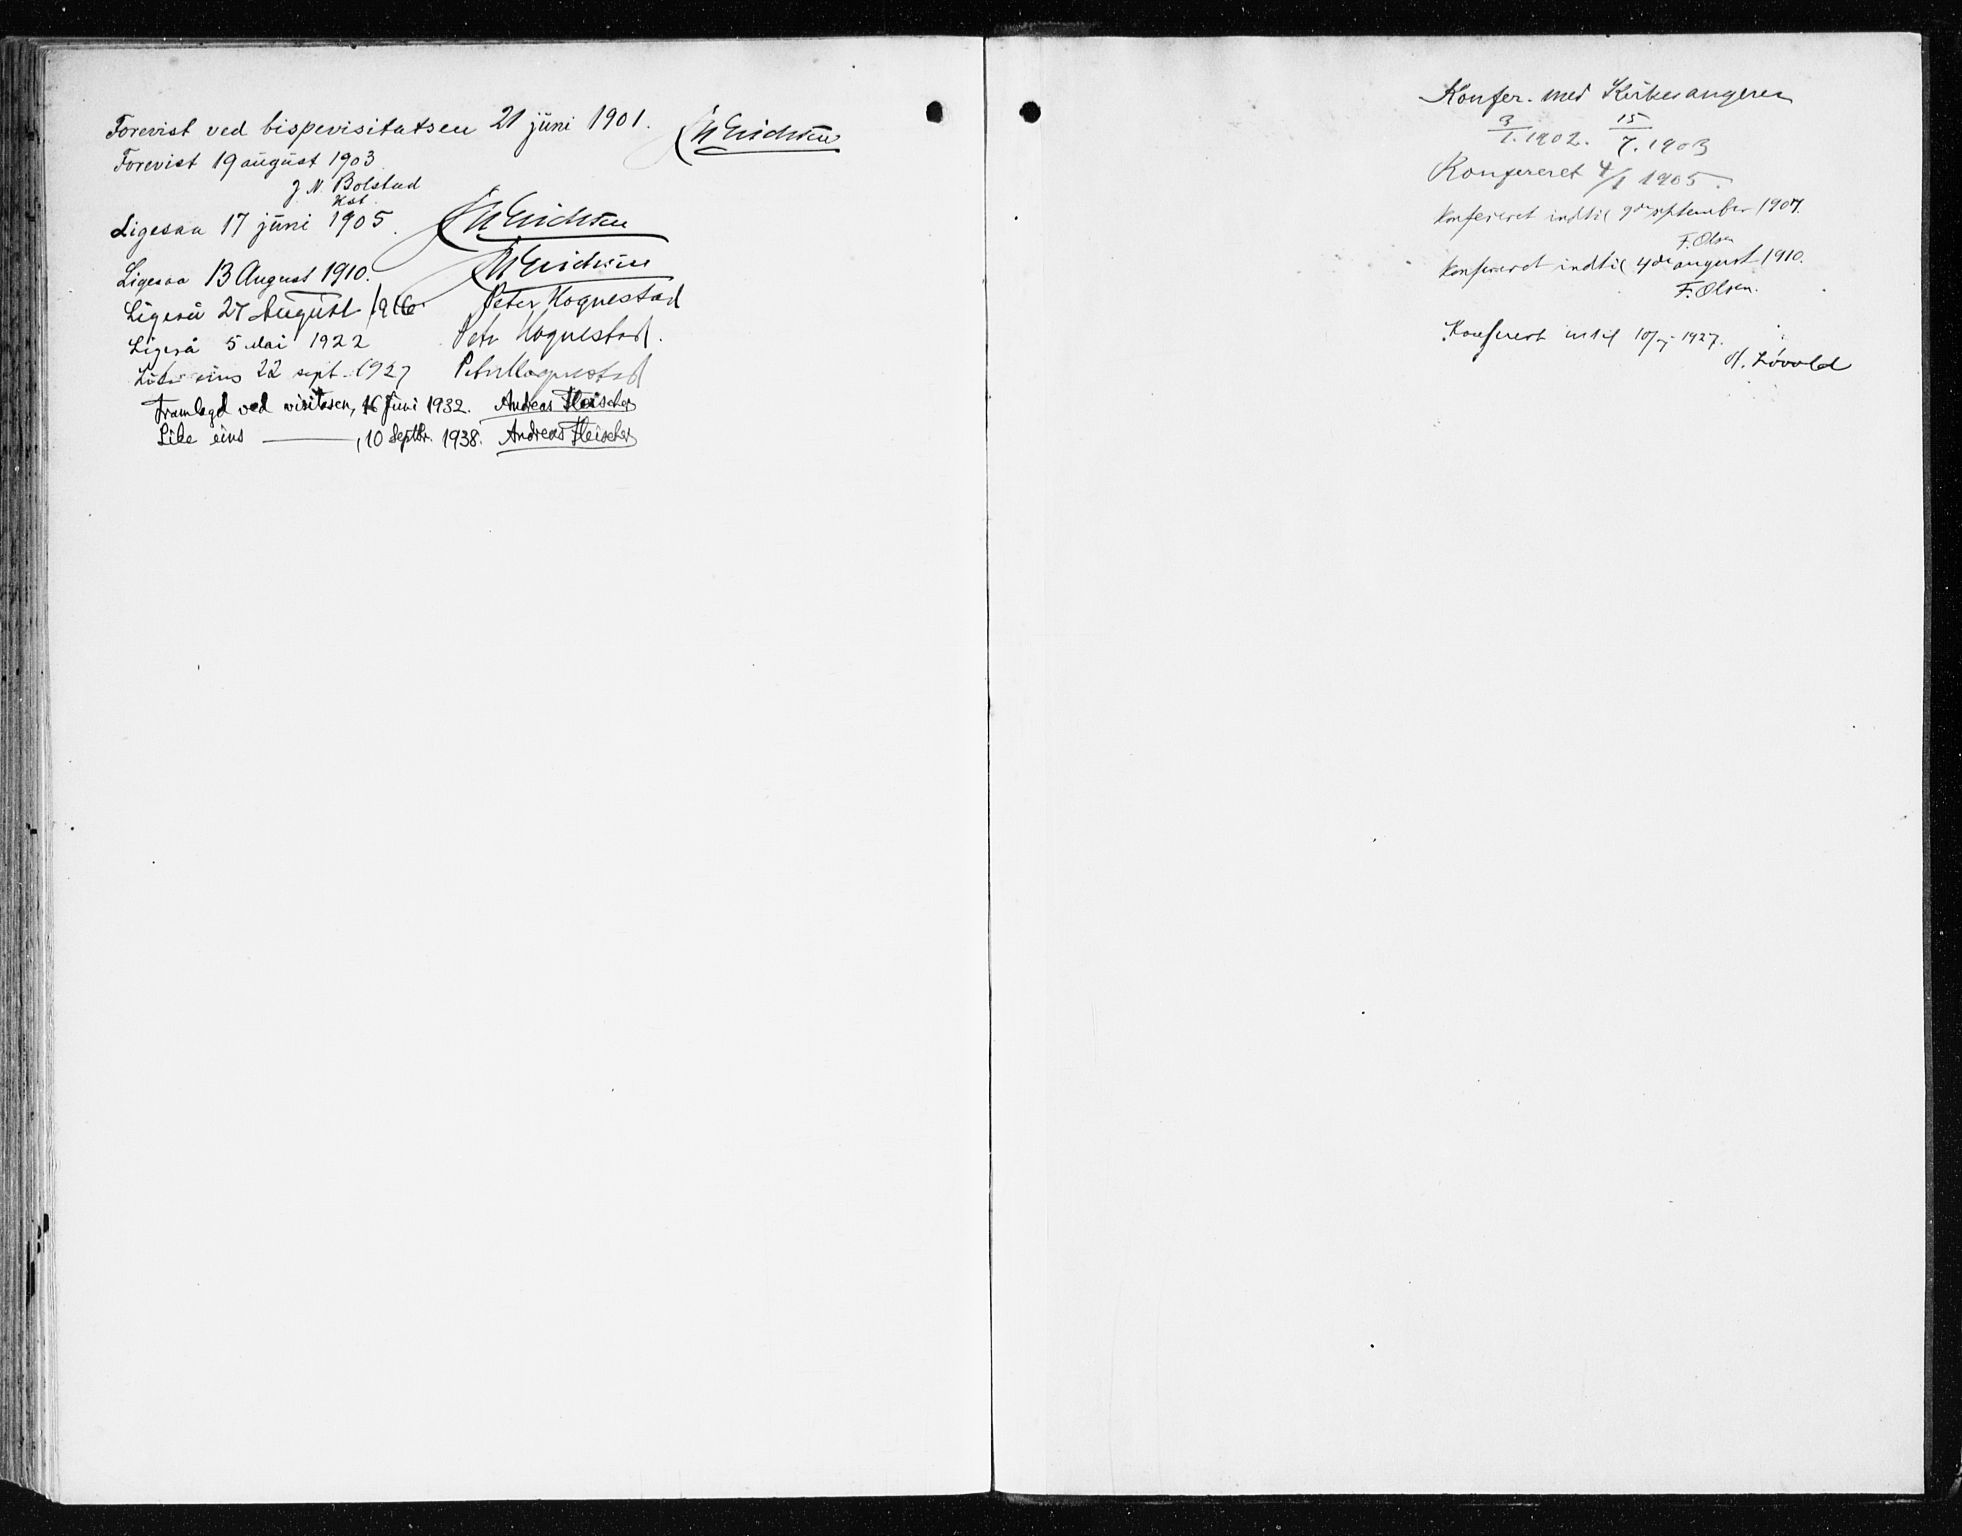 Forevist ved bispevisitatsen 21 juni 1901. Erichsen
Forevist 19 august 1903
J. N. Bolstad
Kst.
Ligesaa 17 juni 1905. Erichsen
Ligesaa 13 August 1910. Erichsen
Ligeså 27 August 1916 Peter Hognestad
Ligeså 5 Mai 1922 Petr Hognestad.
eins 22 sept. 1927 Petr Hognestad
Framlagd ved visitasen, 16 Juni 1932. Andreas Fleischer
Like eins ———, 10 Septbr. 1938. Andreas Fleischer
Konfer. med Kirkesangeren
3/1. 1902. 15/7. 1903
Konfereret 4/1 1905.
Konfereret indtil 9de september 1907.
F. Olsen
Konfereret indtil 4de august 1910.
F. Olsen.
Konferert intil 10/5 1927.
Løvold